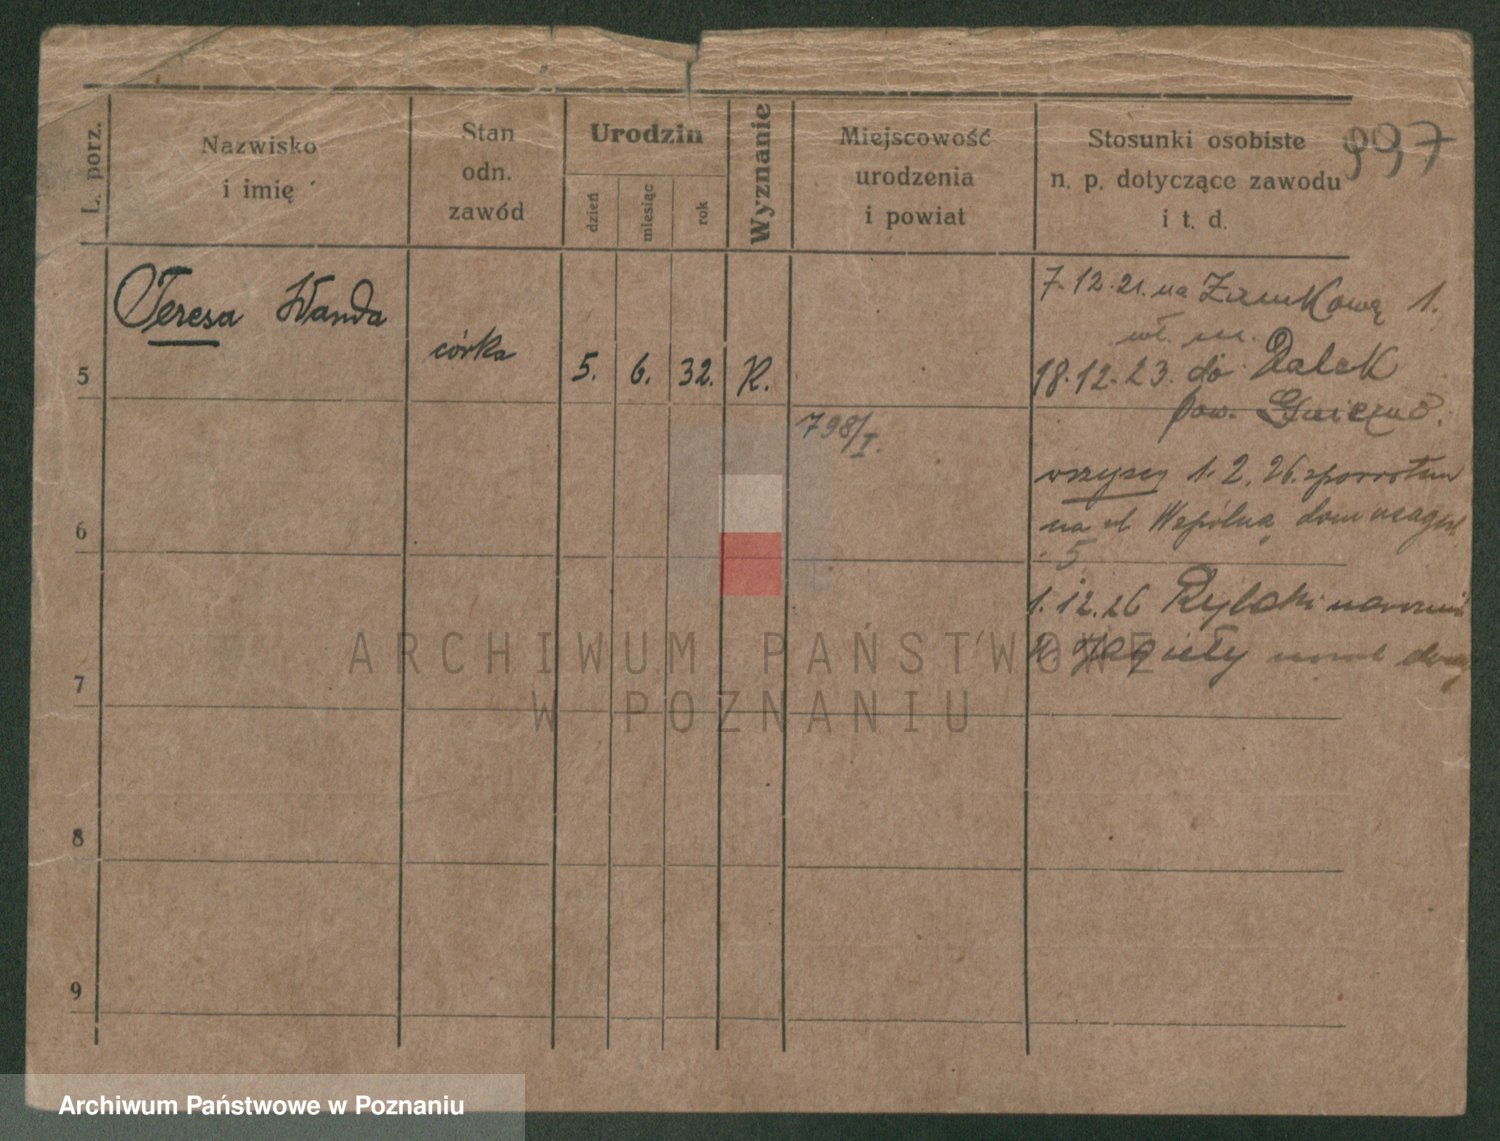 997
L. porz.
Nazwisko
i imię
Stan
odn.
zawód
Urodzin
dzień
miesiąc
rok
Wyznanie
Miejscowość
urodzenia
i powiat
Stosunki osobiste
n. p. dotyczące zawodu
i t. d.
5
Teresa Wanda
córka
5. 6. 32. K.
798/I.
7.12.21. na Zamkową 1.
18.12.23. do Dalek
pow. Gniezno.
wszyscy 1.2.26.
na ul. Wspólną
5
1.12.26 Rybaki
Jagiełły
6
7
8
9
ARCHIWUM PAŃSTWOWE
W POZNANIU
Archiwum Państwowe w Poznaniu